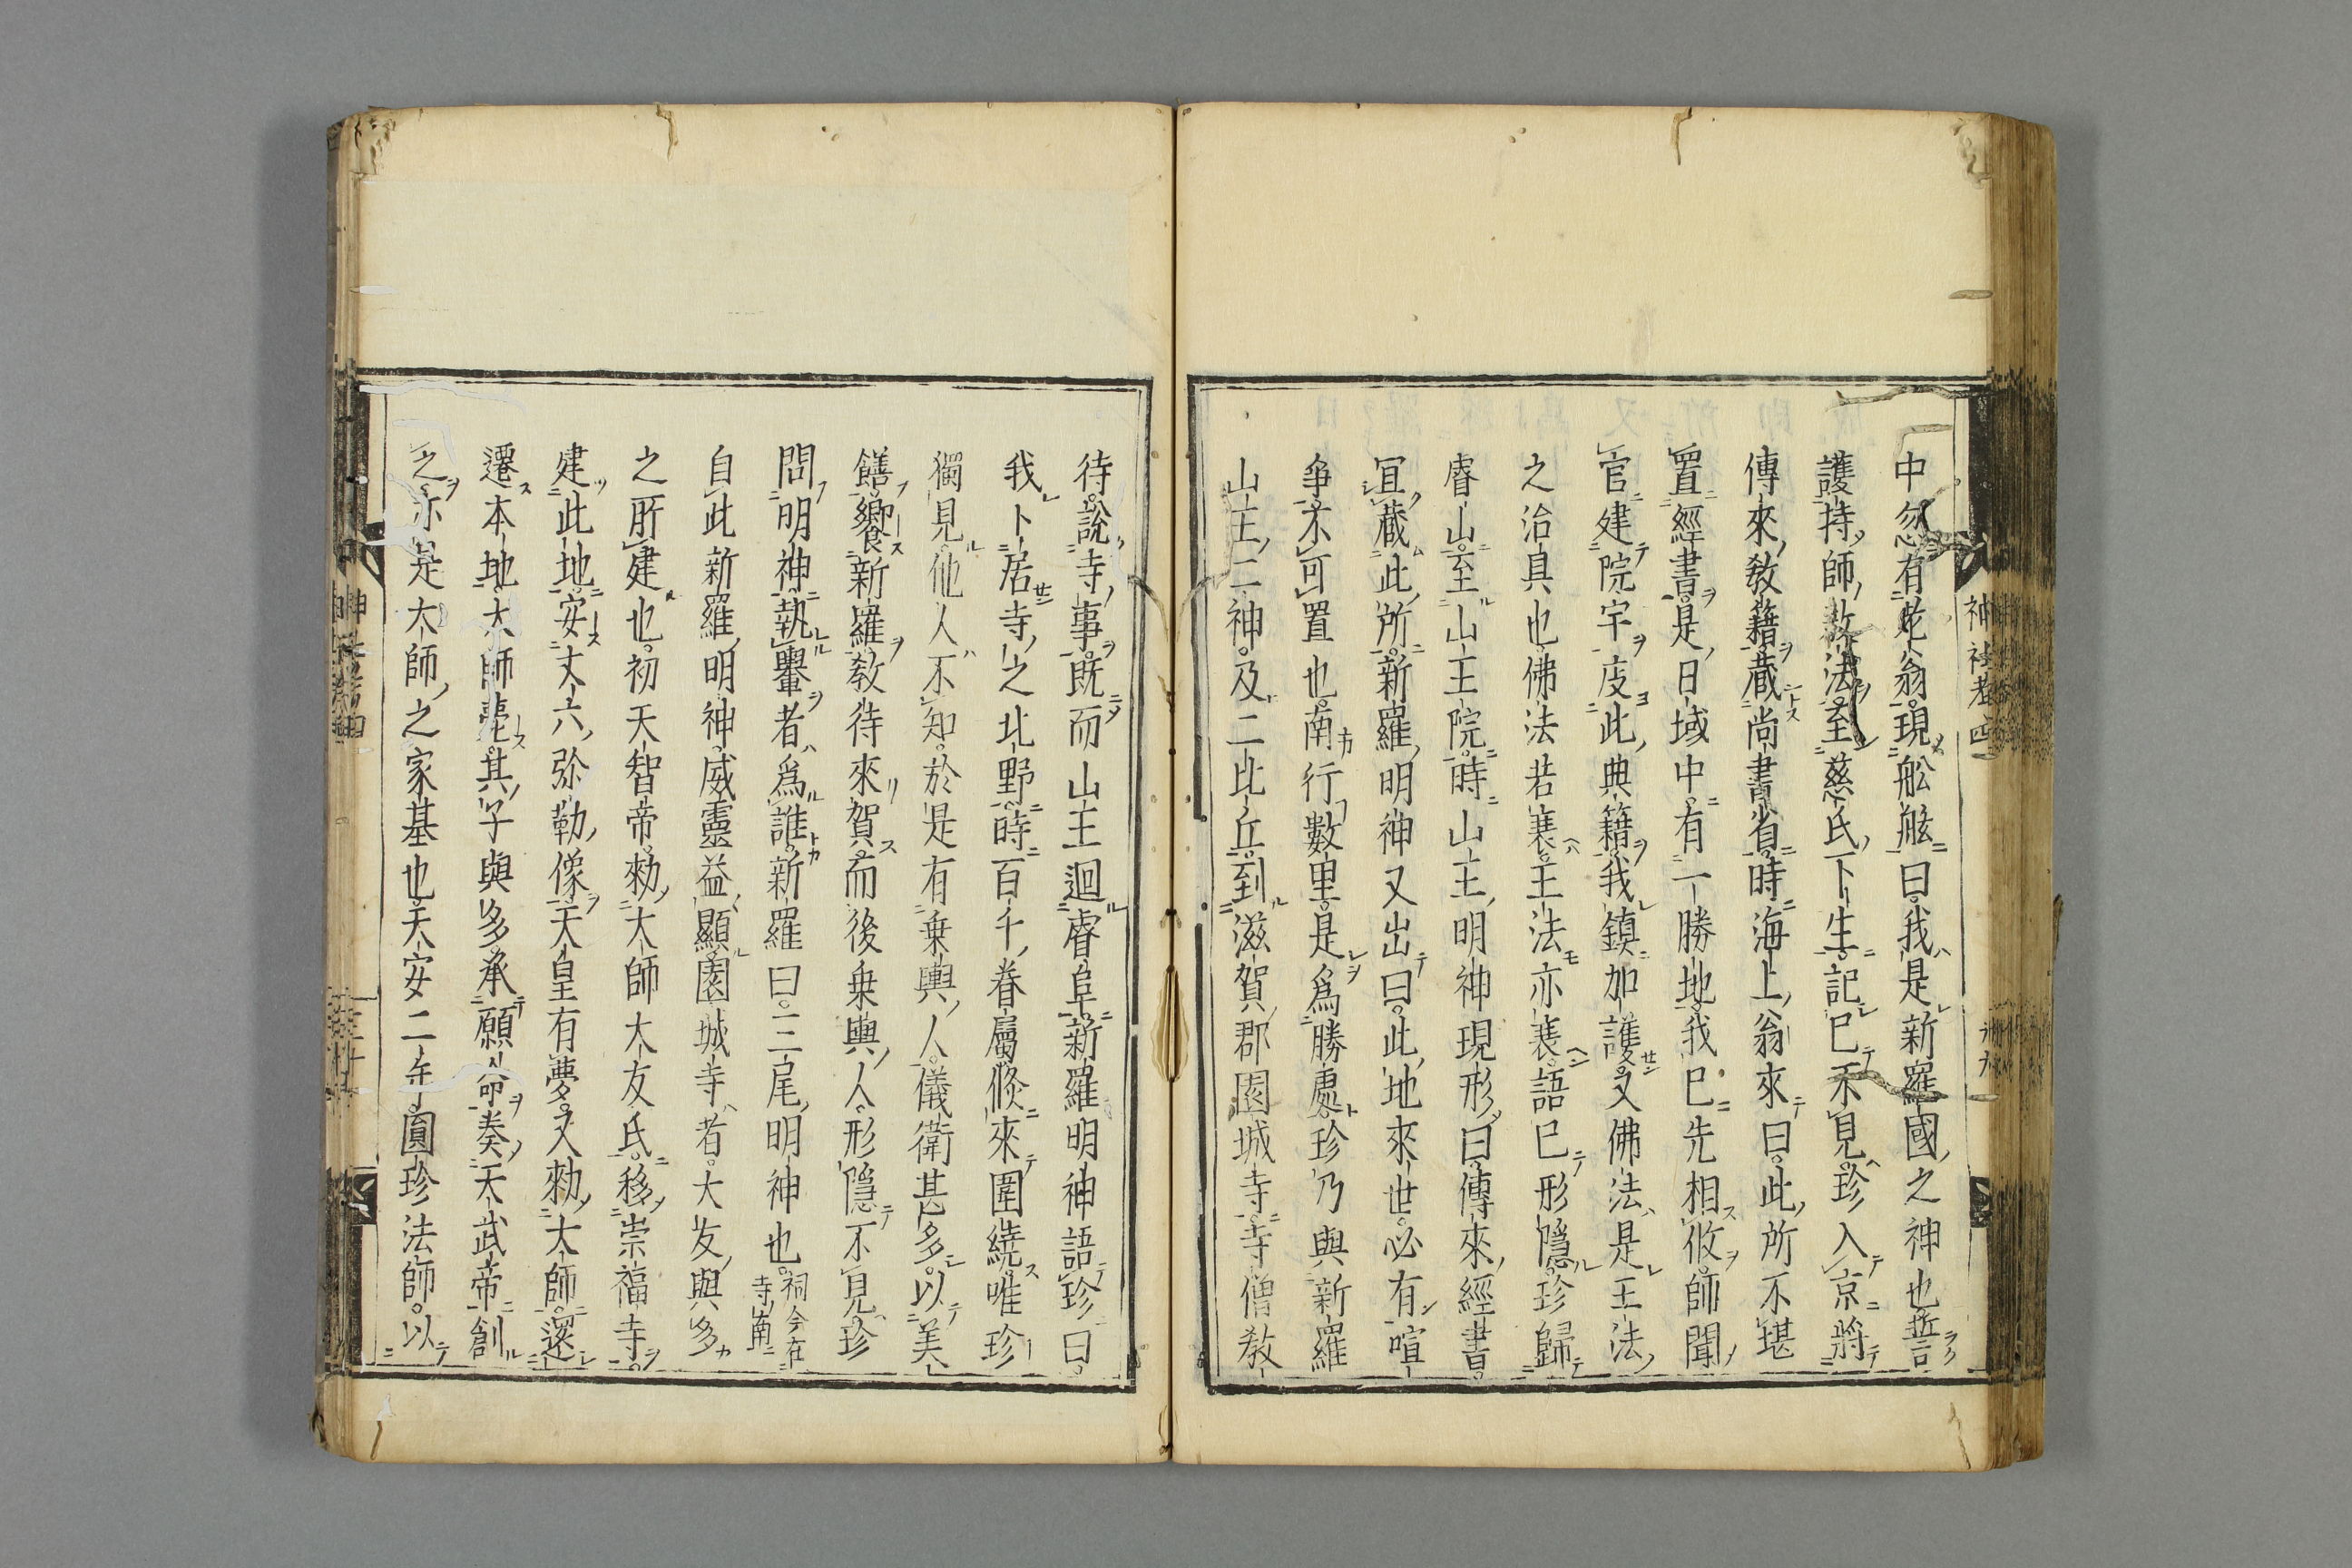 中忽有老翁現舩舷曰我是新羅國之神也誓
護持師教法至慈氏下生記已不見珍入京將
傳來教籍藏尚書省時海上翁來曰此所不堪
置經書是日域中有一勝地我已先相攸師聞
官建院宇庋此典籍我鎮加護又佛法是王法
之治具也佛法若衰王法亦衰語已形隱珍歸
睿山至山王院時山王明神現形曰傳來經書
冝藏此所新羅明神又出曰此地來世必有喧
爭不可置也南行數里是爲勝處珍乃與新羅
山王二神及二比丘到滋賀郡園城寺寺僧教
待說寺事既而山王迴睿阜新羅明神語珍曰
我卜居寺之北野時百千眷屬倐來圍繞唯珍
獨見他人不知於是有乗輿人儀衛甚多以美
饍饗新羅教待來賀而後乗輿人形隱不見珍
問明神執轝者爲誰新羅曰三尾明神也祠今在寺南
自此新羅明神威靈益顯園城寺者大友與多
之所建也初天智帝勑大師大友氏移崇福寺
建此地安丈六弥勒像天皇有夢又勑大師還
遷本地大師薨其子與多承願命奏天武帝創
之亦是大師之家基也天安二年圓珍法師以
神社考四